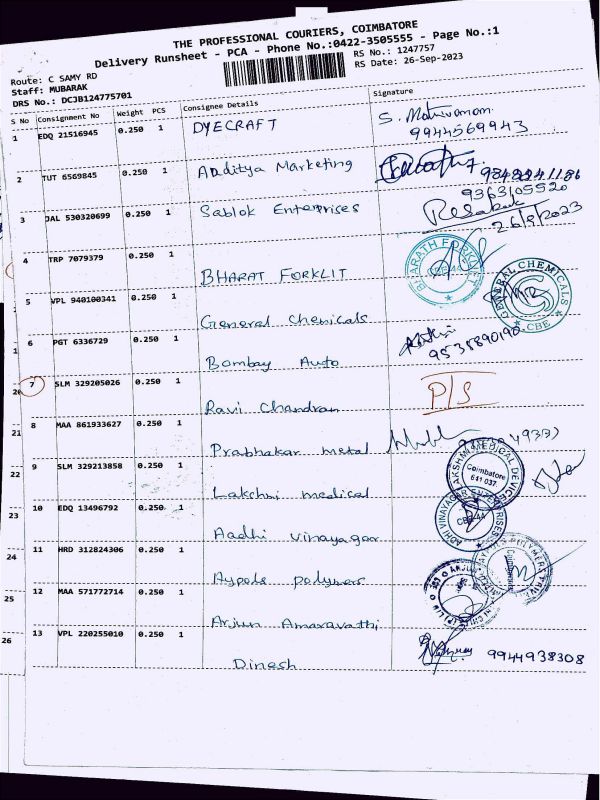 THE PROFESSIONAL COURIERS, COIMBATORE
Delivery Runsheet - PCA - Phone No.:0422-3505555 - Page No.:1
Route: C SAMY RD
RS No.: 1247757
Staff: MUBARAK
RS Date: 26-Sep-2023
DRS No.: DCJB124775701
S No Consignment No Weight PCS Consignee Details Signature
1 EDQ 21516945 0.250 1 DYECRAFT S. Mathivanan
9944569943
2 TUT 6569845 0.250 1 Aaditya Marketing
9363105520
3 JAL 530320699 0.250 1 Sablok Enterprises
26/9/2023
4 TRP 7079379 0.250 1 BHARAT FORKLIT BHARATH FORKLIFT
5 VPL 940100341 0.250 1 General Chemicals GENERAL CHEMICALS CBE
6 PGT 6336729 0.250 1 Bombay Auto
7 SLM 329205026 0.250 1 Ravi Chandran P/S
20
8 MAA 861933627 0.250 1 Prabhakar metal
21
9 SLM 329213858 0.250 1 Lakshmi medical LAKSHMI MEDICAL DEVICE Coimbatore 641 037.
22
10 EDQ 13496792 0.250 1 Aadhi vinayagar ADHI VINAYAGAR ENTERPRISES CBE-44
23
11 HRD 312824306 0.250 1 Aypols polymers
24
12 MAA 571772714 0.250 1 Arjun Amaravathi
25
13 VPL 220255010 0.250 1 Dinesh 9944938308
26